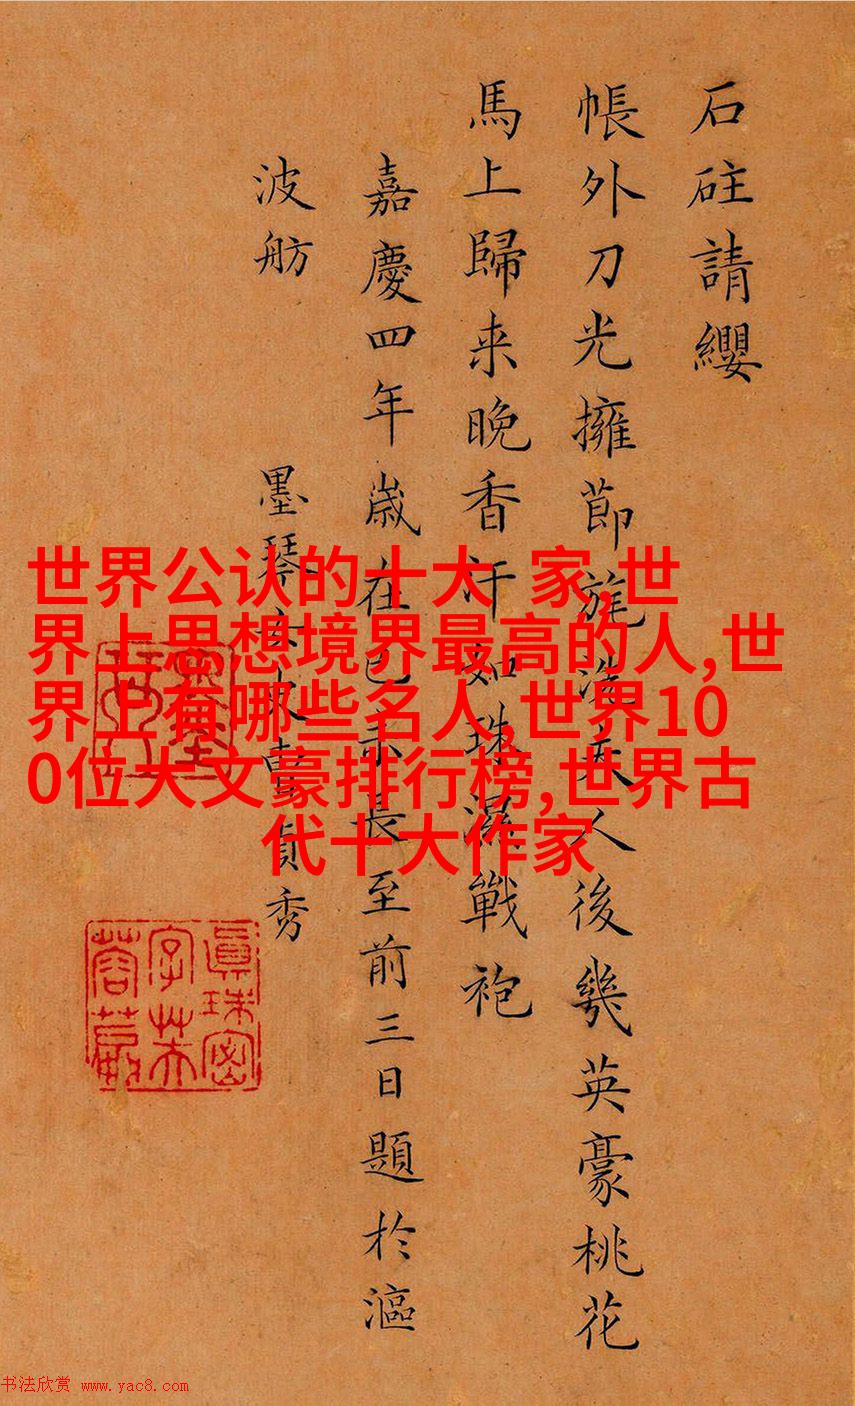 石砫請纓
帳外刀光擁節旄洗夫人後幾英豪桃花
馬上歸来晚香汗如珠濕戰袍
嘉慶四年歲在己未長至前三日題於漚
波舫 墨琴女史曹貞秀
眞珠密
字芙
蓉
世界公认的十大 家,世
界上思想境界最高的人,世
界上有哪些名人,世界10
0位大文豪排行榜,世界古
代十大作家
书法欣赏 www.yac8.com